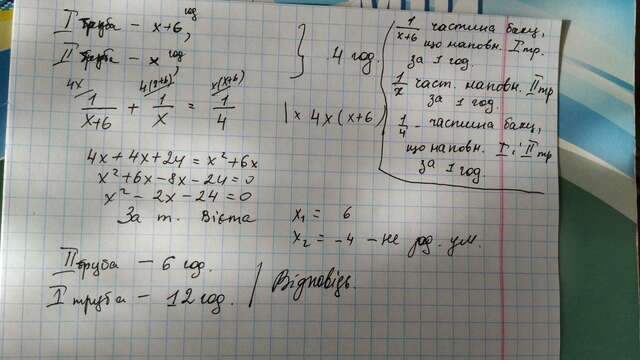 I труба – x+6 год,
II труба – x год
} 4 год.
4x/ 4(x+6)/ x(x+6)/
1/(x+6) + 1/x = 1/4 | × 4x(x+6)
4x+4x+24 = x²+6x
x²+6x-8x-24=0
x²-2x-24=0
За т. Вієта
x₁ = 6
x₂ = -4 – не зад. ум.
II труба – 6 год.
I труба – 12 год.
Відповідь.
1/(x+6) частина баку,
що наповн. I тр.
за 1 год.
1/x част. наповн. II тр
за 1 год.
1/4 - частина баку,
що наповн. I і II тр
за 1 год.